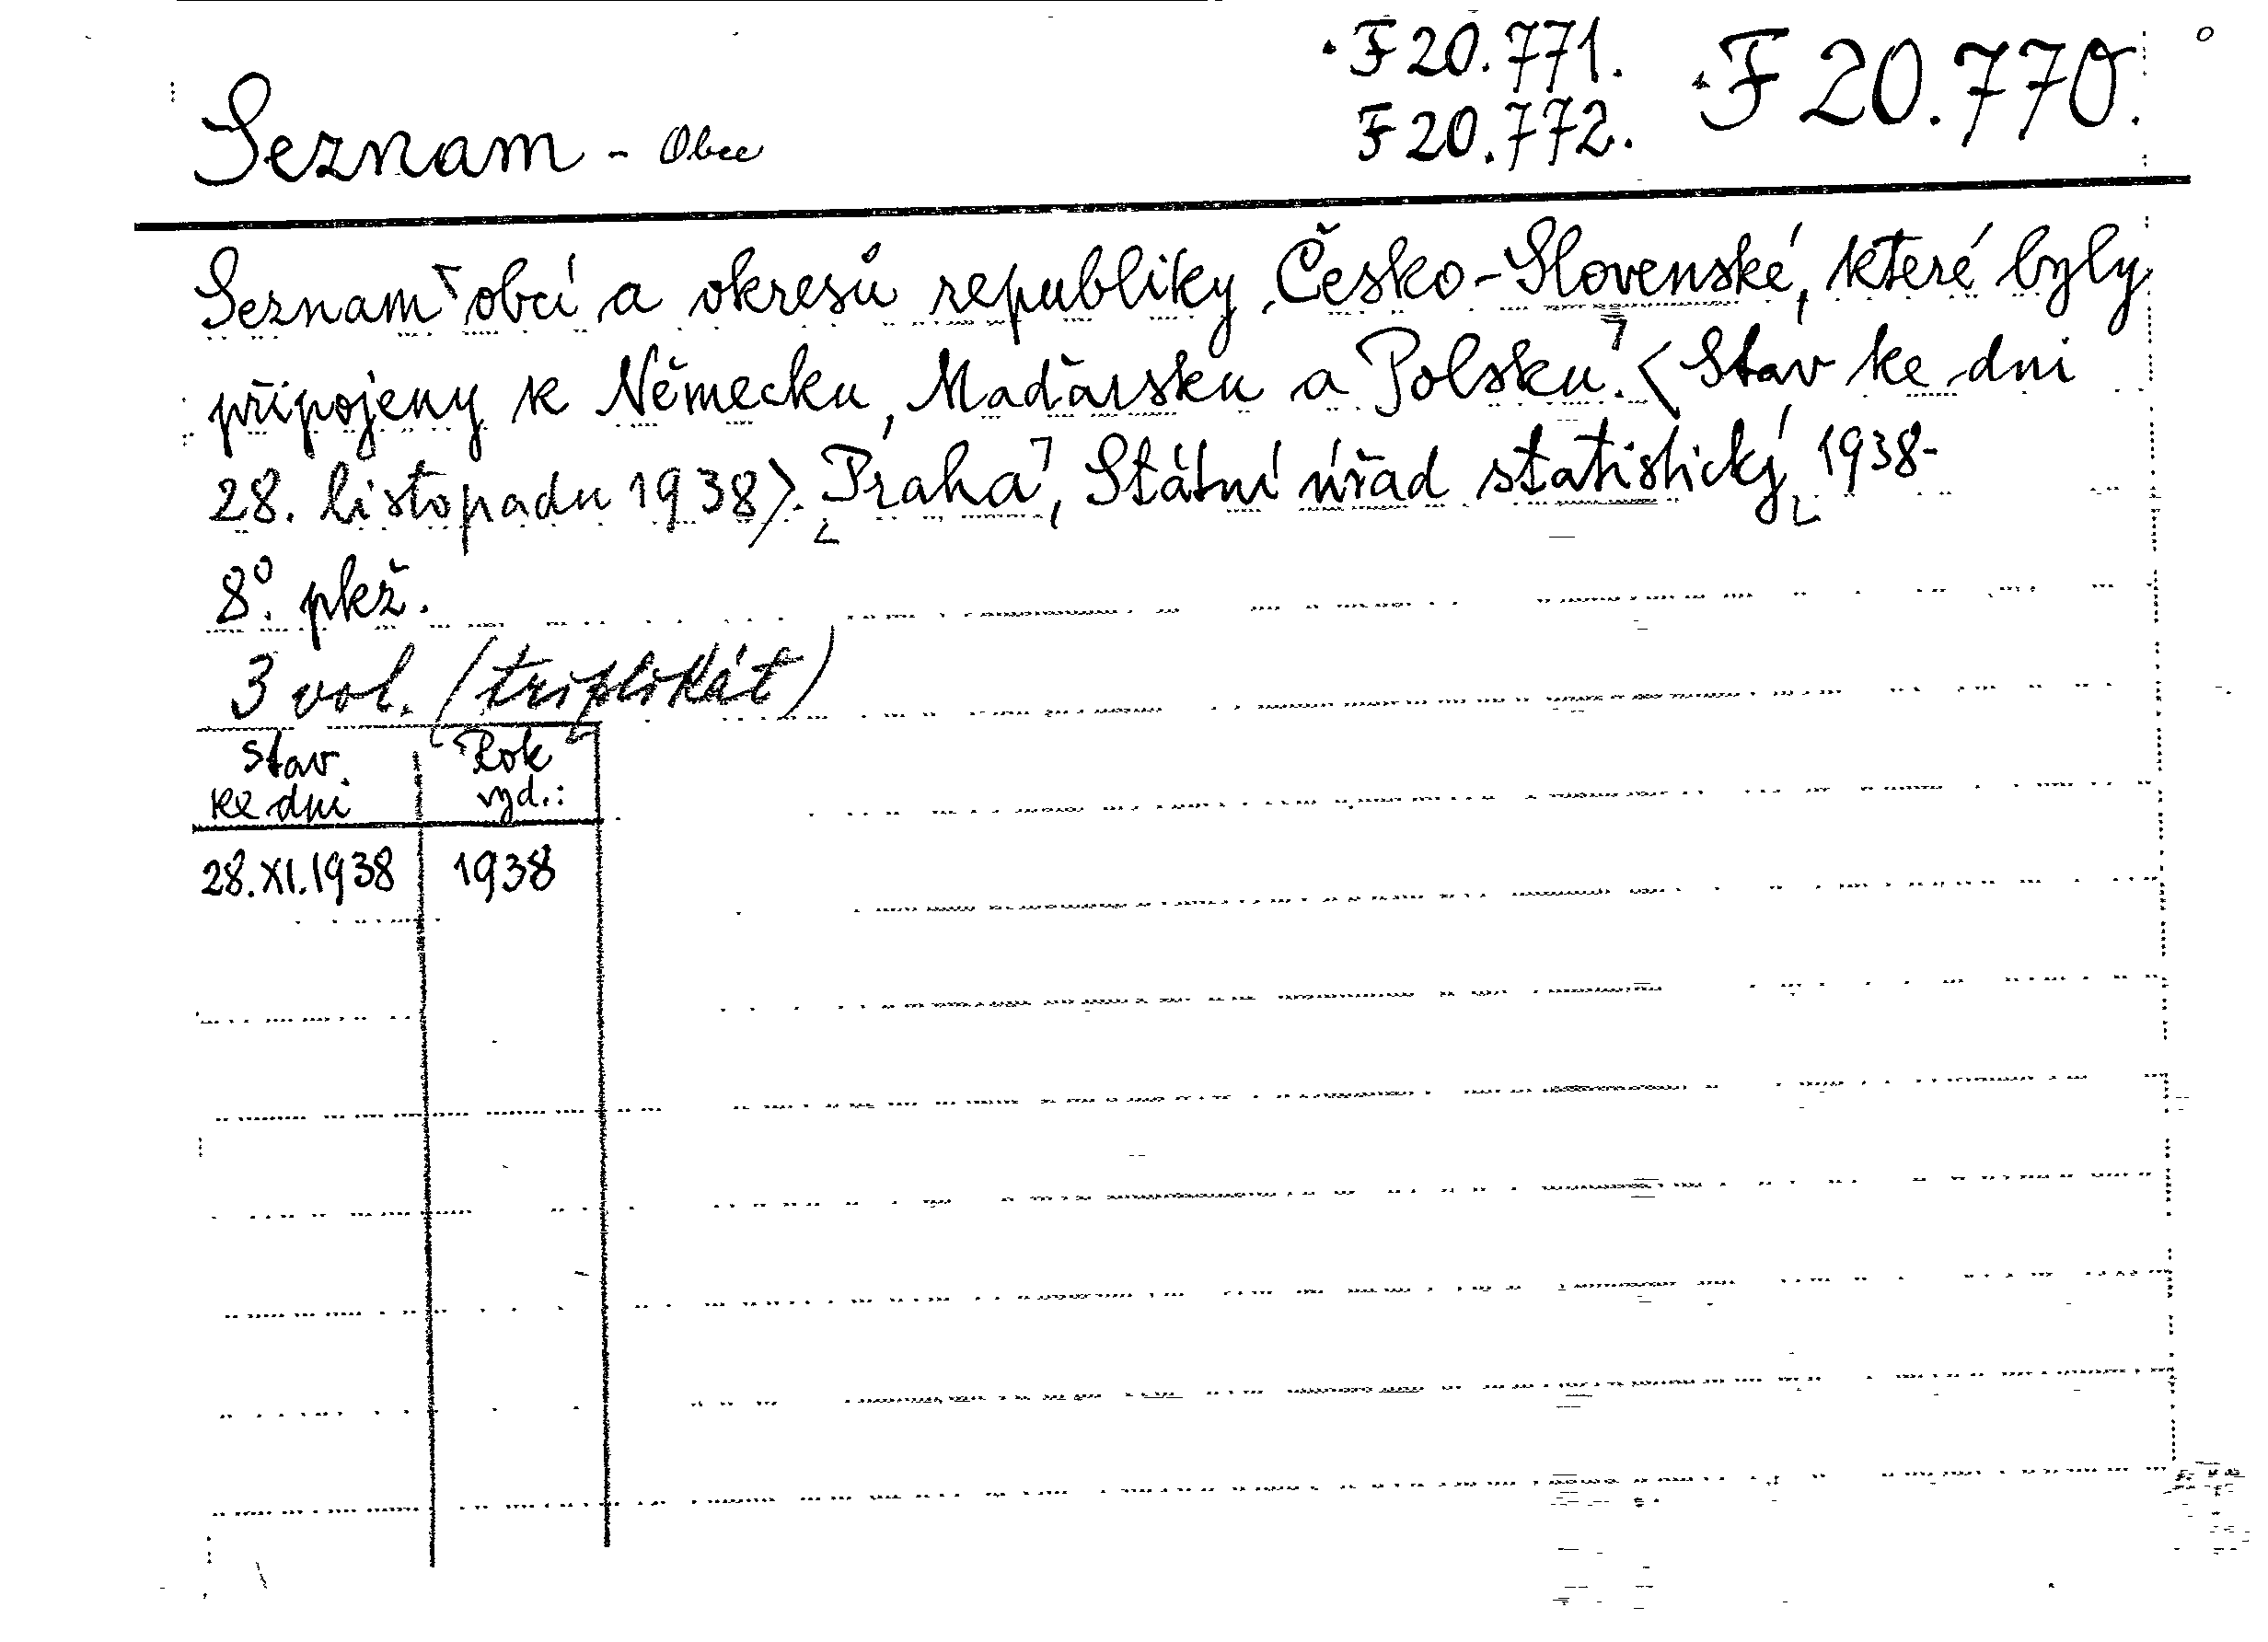 F 20.771.
F 20.770.
Seznam - Obce
F 20.772.
Seznam obcí a okresů republiky Česko-Slovenské, které byly
připojeny k Německu, Maďarsku a Polsku. <Stav ke dni
28. listopadu 1938>. Praha, Státní úřad statistický 1938-
8°. pkž.
3 vol. (triplikát)
stav ke dni Rok vyd.:
28.XI.1938 1938